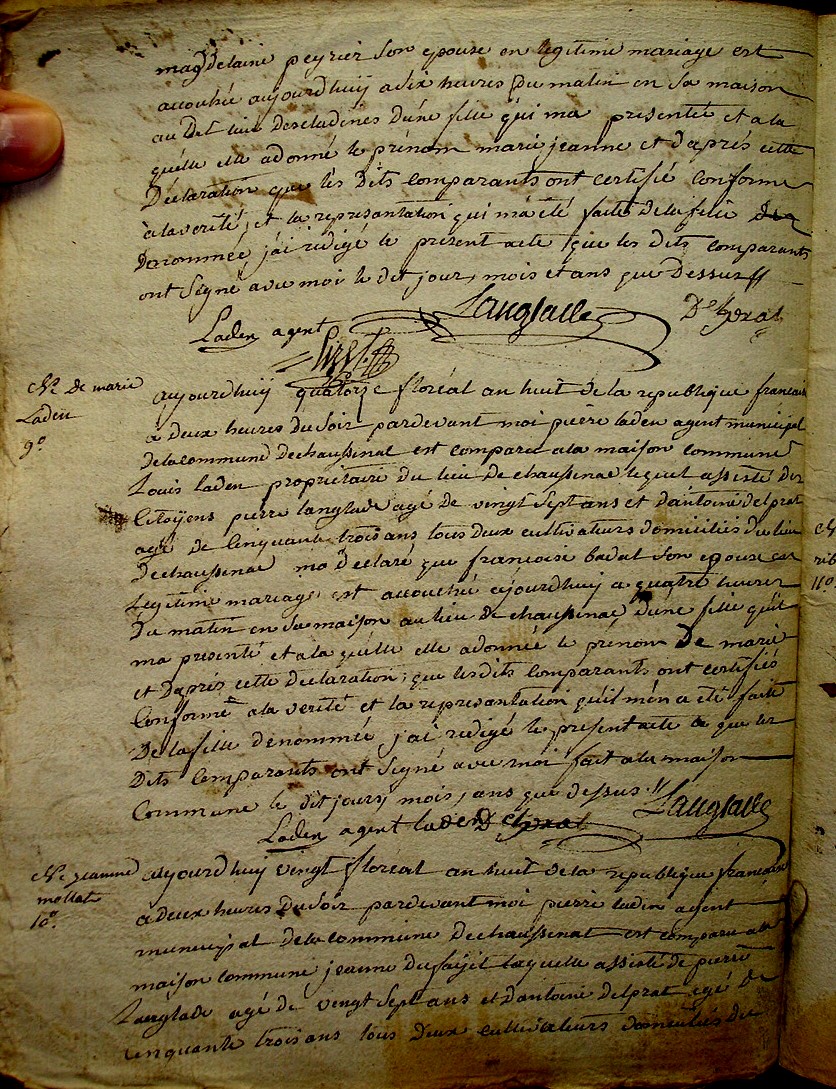 magdelaine peyrier son epouse en legitime mariage est
acouchée aujourdhuij a six heures du matin en sa maison
au dit lieu descladines dune fille qui ma presenté et a la
quelle elle adonné le prénom marie jeanne et daprés cette
Déclaration que les dits comparants ont certifié conforme
a la verité, et la represantation qui ma été faite de la fille
Denommée j'ai redigé le présent acte que les dits comparants
ont signé avec moi le dit jour, mois et ans que Dessus //
Laden agent Langlade Delprat
Ne. de marie
Laden
9e.
aujourdhuij quatorze floréal an huit de la republique francaise
a deux heures du soir pardevant moi pierre laden agent municipal
de la commune dechaussenac est comparu a la maison commune
Louis laden propriétaire du lieu de chaussenac lequel assisté des
Citoÿens pierre langlade agé de vingt sept ans et dantoine delprat
agé de Cinquante trois ans tous deux cultivateurs domiciliés du lieu
Dechaussenac ma declaré que francoise badal son epouse en
Legitime mariage est acouchée aujourdhuij a quatre heures
Du matin en sa maison au lieu de chaussenac dune fille quil
ma presenté et a la quelle elle adonnée le prenom De marie
et Daprés cette declaration; que lesdits comparants ont certifiés
Conforme a la verité et la represantation quil mén a eté faite
De la fille denommée j'ai redigé le present acte que les
Dits comparants ont signé avec moi fait a la maison
Commune le dit jours, mois, ans que dessus // Langlade
Laden agent laden Delprat
Ne. jeanne
mollat
10e.
aujourdhuij vingt floréal an huit de la republique francaise
a deux heures du soir pardevant moi pierre laden agent
municipal de la commune dechaussenac est comparu a la
maison commune jeanne laquelle assisté de pierre
Langlade agé de vingt sept ans et dantoine delprat agé de
cinquante trois ans tous deux cultivateurs domiciliés du